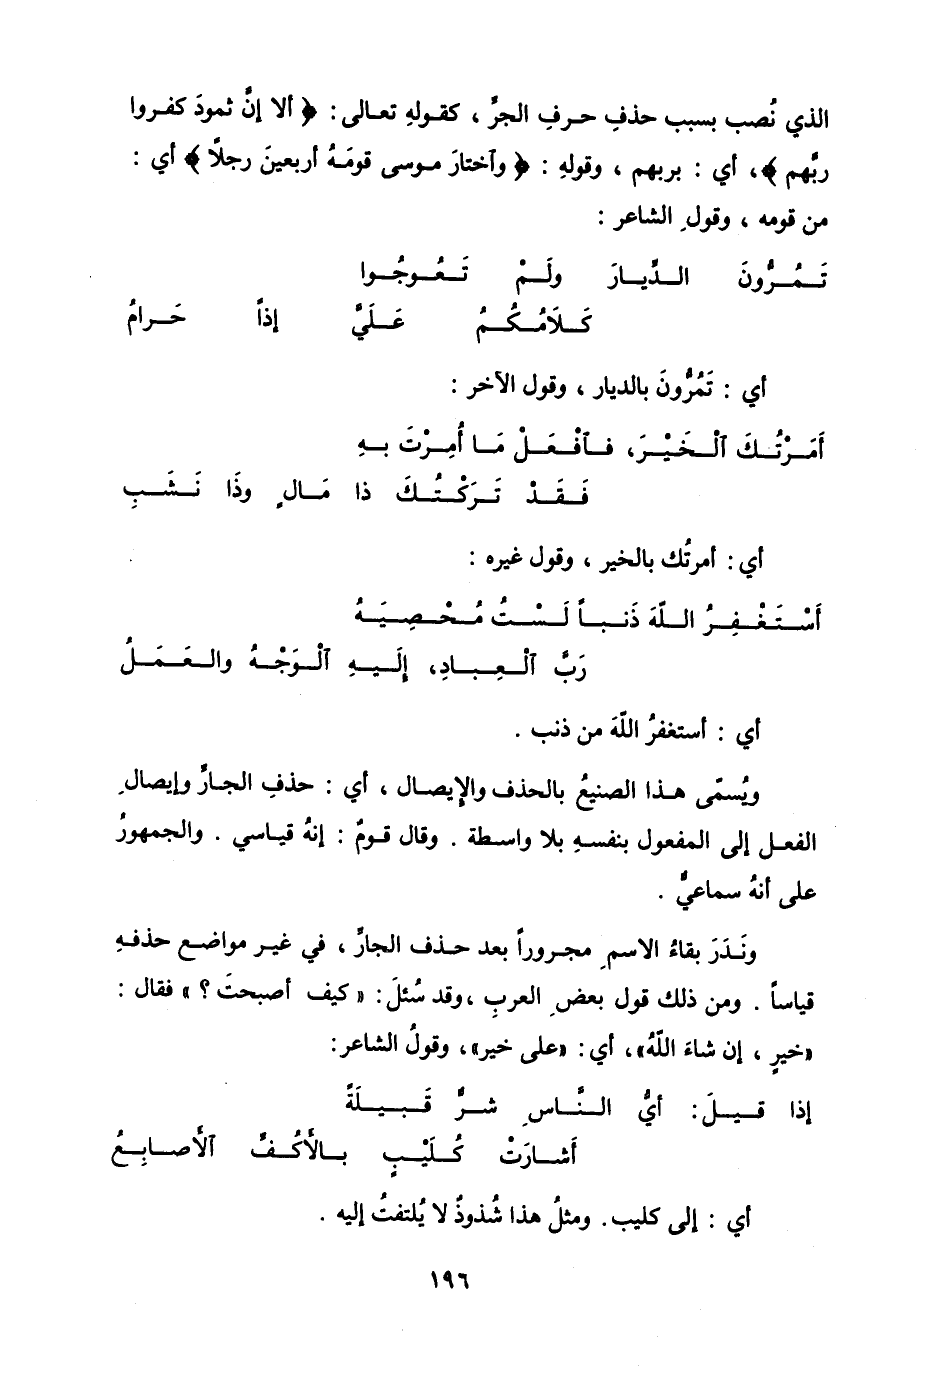 الذي نُصب بسبب حذفِ حرفِ الجرِّ ، كقولهِ تعالى : ﴿ ألا إنَّ ثمودَ كفروا
ربَّهم ﴾، أي : بربهم ، وقولهِ : ﴿ وآختارَ موسى قومَهُ أربعينَ رجلاً ﴾ أي :
من قومه ، وقولِ الشاعر :
تَمُرُّونَ الدِّيارَ ولَمْ تَعُوجُوا
كَلاَمُكُمُ عَلَيَّ إذاً حَرامُ
أي : تَمُرُّونَ بالديار ، وقول الآخر :
أَمَرْتُكَ ٱلْخَيْرَ، فٱفْعَلْ مَا أُمِرْتَ بهِ
فَقَدْ تَرَكْتُكَ ذا مَالٍ وذَا نَشَبِ
أي : أمرتُك بالخير ، وقول غيره :
أَسْتَغْفِرُ اللّهَ ذَنباً لَسْتُ مُحْصِيَهُ
رَبَّ ٱلْعِبادِ، إلَيهِ ٱلْوَجْهُ والعَمَلُ
أي : أستغفرُ اللّهَ من ذنب .
ويُسمّى هذا الصنيعُ بالحذف والإيصال ، أي : حذفِ الجارِّ وإيصالِ
الفعل إلى المفعول بنفسهِ بلا واسطة . وقال قومٌ : إنهُ قياسي . والجمهورُ
على أنهُ سماعيٌّ .
ونَدَرَ بقاءُ الاسمِ مجروراً بعد حذف الجارِّ ، في غير مواضع حذفهِ
قياساً . ومن ذلك قول بعضِ العربِ ، وقد سُئلَ : « كيف أصبحتَ ؟ » فقال :
«خيرٍ ، إن شاءَ اللّهُ»، أي : «على خير»، وقولُ الشاعر :
إذا قيلَ : أيُّ النَّاسِ شرُّ قَبيلَةً
أَشارَتْ كُلَيْبٍ بالأَكُفِّ ٱلأَصابِعُ
أي : إلى كليب . ومثلُ هذا شُذوذٌ لا يُلتفتُ إليه .
١٩٦